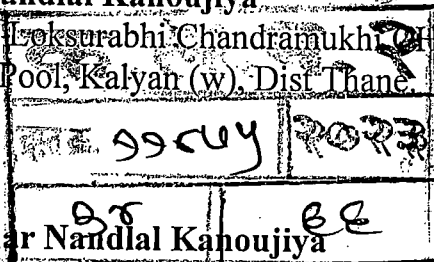 andlal Kanoujiya
Loksurabhi Chandramukhi CH
Pool, Kalyan (w), Dist Thane.
११८५५ २०२३
३४ ६६
ar Nandlal Kanoujiya